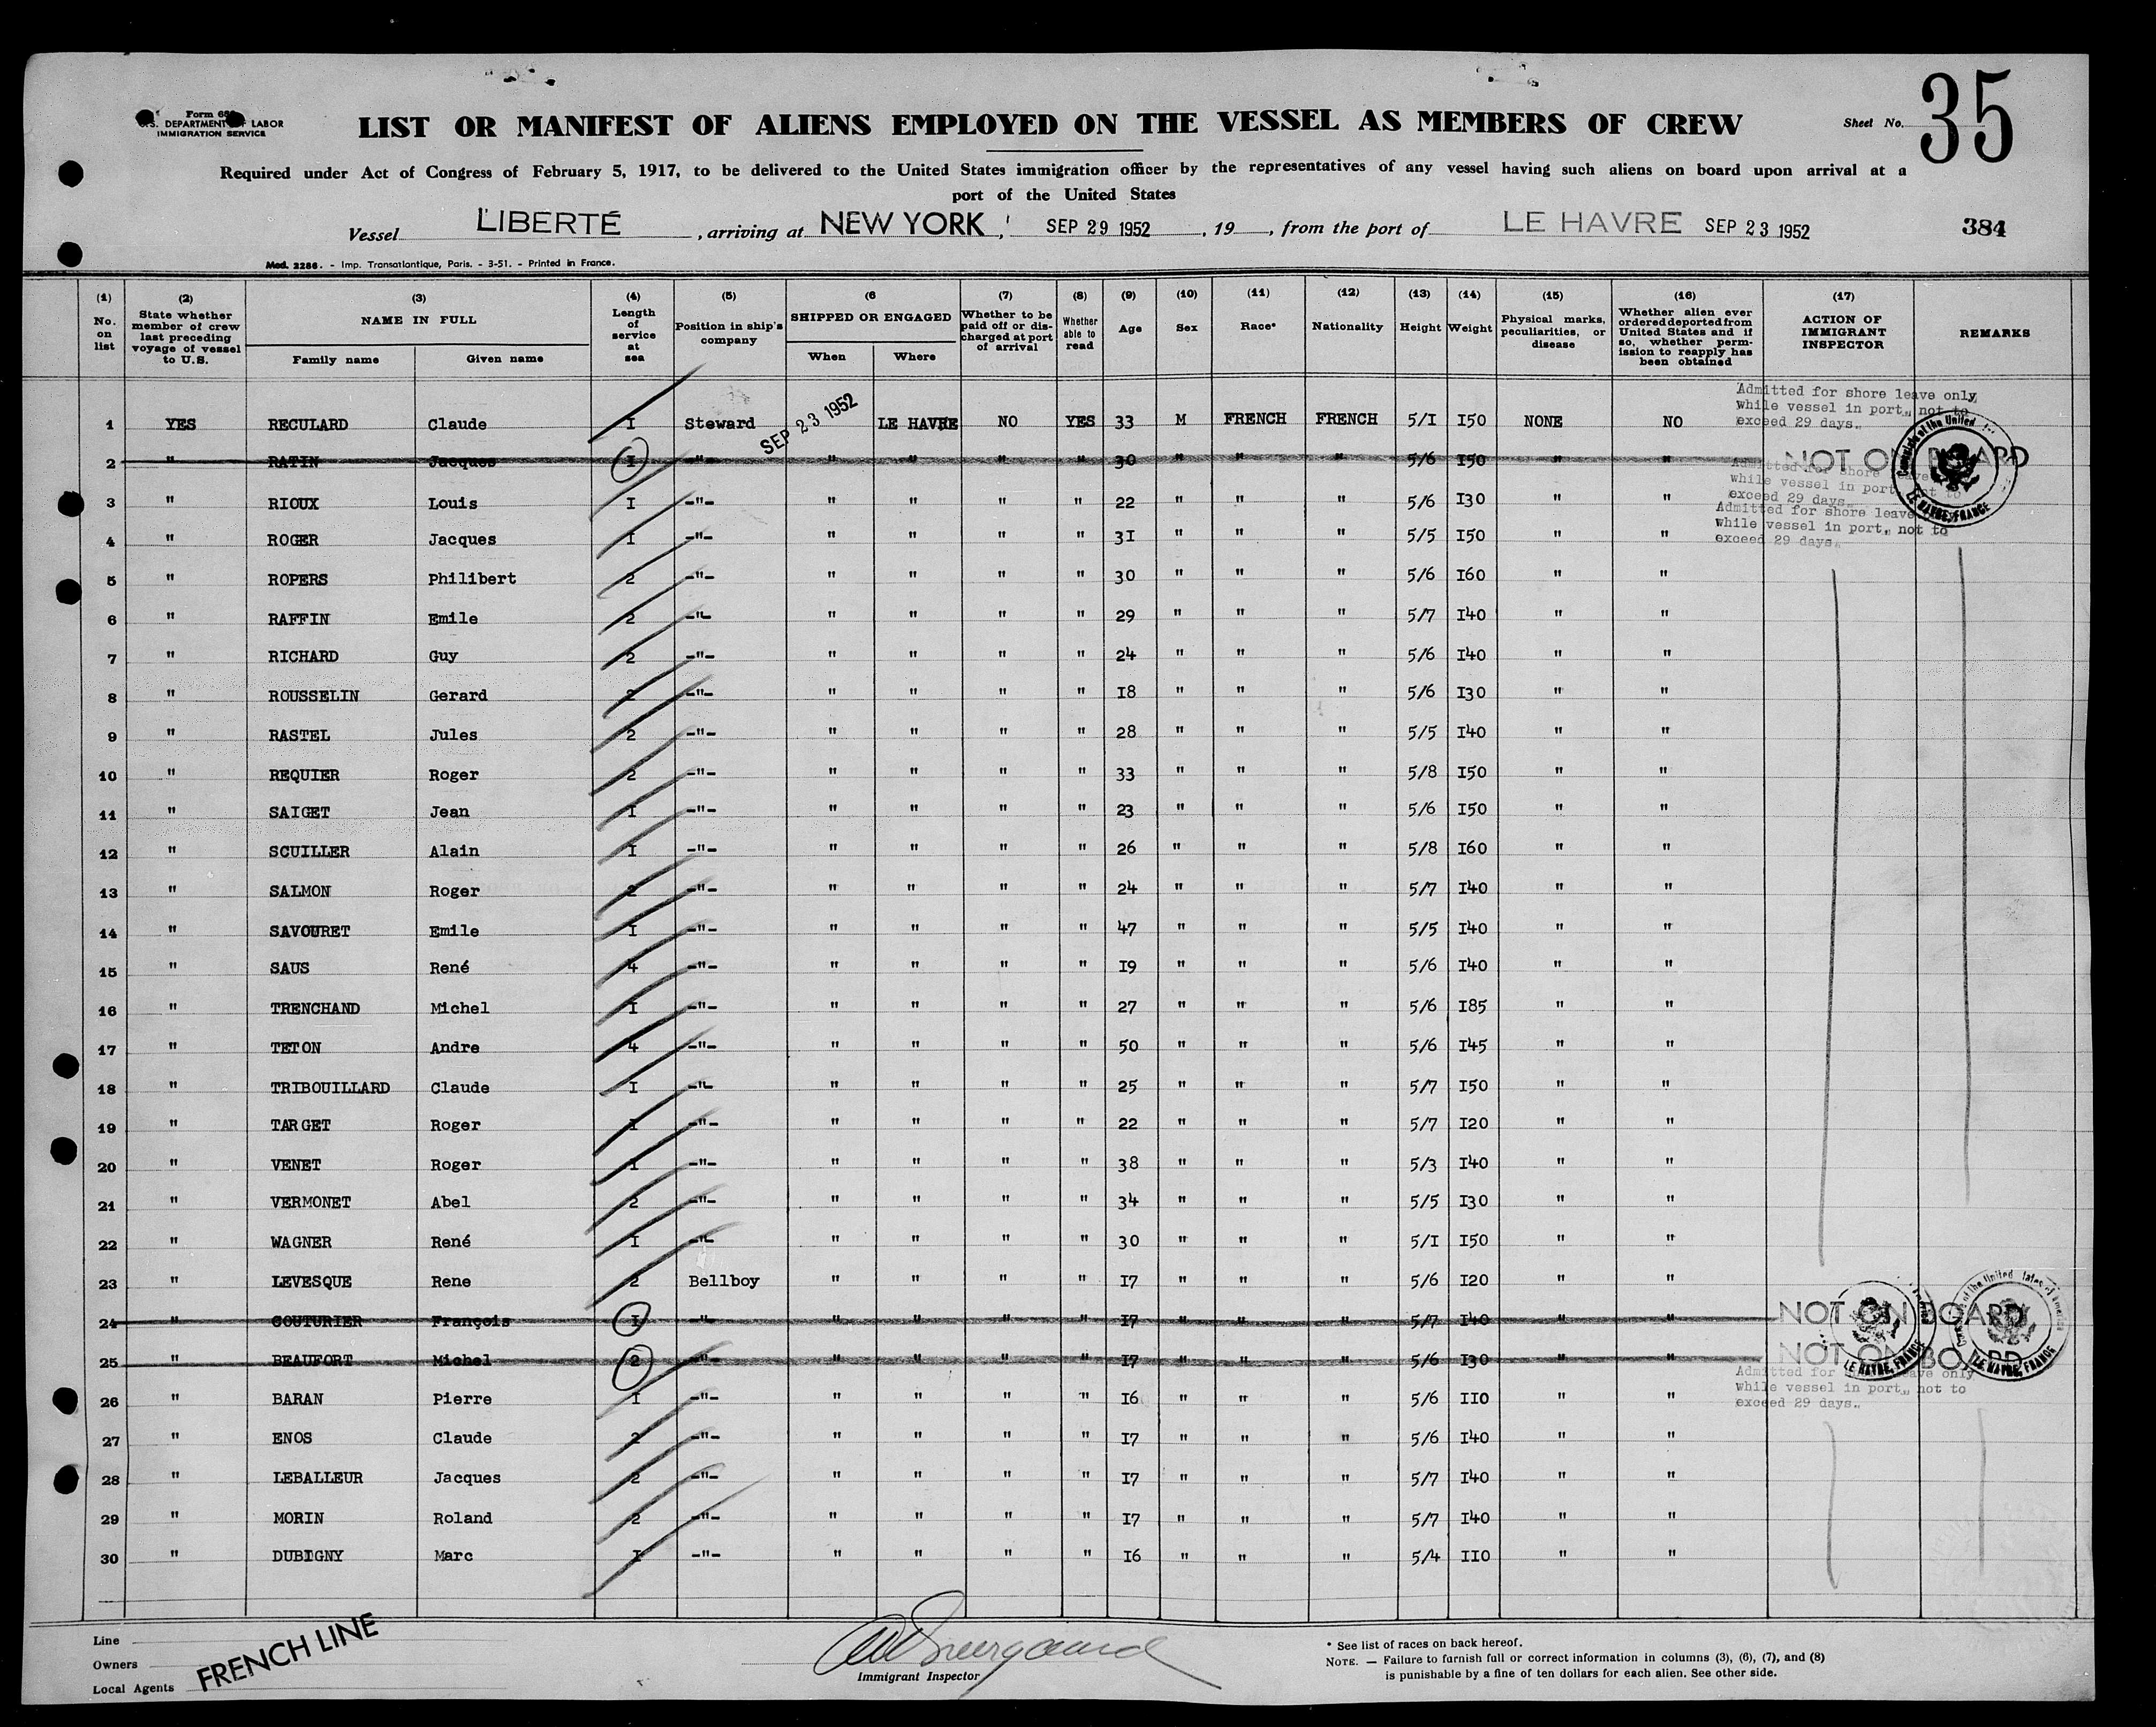 Form 680
U.S. DEPARTMENT OF LABOR
IMMIGRATION SERVICE
LIST OR MANIFEST OF ALIENS EMPLOYED ON THE VESSEL AS MEMBERS OF CREW
Sheet No. 35
Required under Act of Congress of February 5, 1917, to be delivered to the United States immigration officer by the representatives of any vessel having such aliens on board upon arrival at a
port of the United States
Vessel LIBERTÉ, arriving at NEW YORK, SEP 29 1952, 19, from the port of LE HAVRE SEP 23 1952 384
Mod. 2286. - Imp. Transatlantique, Paris. - 3-51. - Printed in France.
(1) No. on list (2) State whether member of crew last preceding voyage of vessel to U.S. (3) NAME IN FULL Family name Given name (4) Length of service at sea (5) Position in ship's company (6 SHIPPED OR ENGAGED When Where (7) Whether to be paid off or discharged at port of arrival (8) Whether able to read (9) Age (10) Sex (11) Race* (12) Nationality (13) Height (14) Weight (15) Physical marks, peculiarities, or disease (16) Whether alien ever ordered deported from United States and if so, whether permission to reapply has been obtained (17) ACTION OF IMMIGRANT INSPECTOR REMARKS
1 YES RECULARD Claude I Steward SEP 23 1952 LE HAVRE NO YES 33 M FRENCH FRENCH 5/I I50 NONE NO Admitted for shore leave only, while vessel in port, not to exceed 29 days.
2 " RATIN Jacques I -"- " " " " 30 " " " 5/6 I50 " " NOT ON BOARD
3 " RIOUX Louis I -"- " " " " 22 " " " 5/6 I30 " " Admitted for shore leave while vessel in port, not to exceed 29 days
4 " ROGER Jacques I -"- " " " " 3I " " " 5/5 I50 " " Admitted for shore leave while vessel in port, not to exceed 29 days.
5 " ROPERS Philibert 2 -"- " " " " 30 " " " 5/6 I60 " "
6 " RAFFIN Emile 2 -"- " " " " 29 " " " 5/7 I40 " "
7 " RICHARD Guy 2 -"- " " " " 24 " " " 5/6 I40 " "
8 " ROUSSELIN Gerard 2 -"- " " " " I8 " " " 5/6 I30 " "
9 " RASTEL Jules 2 -"- " " " " 28 " " " 5/5 I40 " "
10 " REQUIER Roger 2 -"- " " " " 33 " " " 5/8 I50 " "
11 " SAIGET Jean I -"- " " " " 23 " " " 5/6 I50 " "
12 " SCUILLER Alain I -"- " " " " 26 " " " 5/8 I60 " "
13 " SALMON Roger 2 -"- " " " " 24 " " " 5/7 I40 " "
14 " SAVOURET Emile I -"- " " " " 47 " " " 5/5 I40 " "
15 " SAUS René 4 -"- " " " " I9 " " " 5/6 I40 " "
16 " TRENCHAND Michel I -"- " " " " 27 " " " 5/6 I85 " "
17 " TETON Andre 4 -"- " " " " 50 " " " 5/6 I45 " "
18 " TRIBOUILLARD Claude I -"- " " " " 25 " " " 5/7 I50 " "
19 " TARGET Roger I -"- " " " " 22 " " " 5/7 I20 " "
20 " VENET Roger I -"- " " " " 38 " " " 5/3 I40 " "
21 " VERMONET Abel 2 -"- " " " " 34 " " " 5/5 I30 " "
22 " WAGNER René I -"- " " " " 30 " " " 5/I I50 " "
23 " LEVESQUE Rene 2 Bellboy " " " " I7 " " " 5/6 I20 " "
24 " COUTURIER François I -"- " " " " I7 " " " 5/7 I40 " " NOT ON BOARD
25 " BEAUFORT Michel 2 -"- " " " " I7 " " " 5/6 I30 " " NOT ON BOARD
26 " BARAN Pierre I -"- " " " " I6 " " " 5/6 II0 " " Admitted for shore leave only while vessel in port, not to exceed 29 days.
27 " ENOS Claude 2 -"- " " " " I7 " " " 5/6 I40 " "
28 " LEBALLEUR Jacques 2 -"- " " " " I7 " " " 5/7 I40 " "
29 " MORIN Roland 2 -"- " " " " I7 " " " 5/7 I40 " "
30 " DUBIGNY Marc I -"- " " " " I6 " " " 5/4 II0 " "
LE HAVRE, FRANCE
LE HAVRE, FRANCE
LE HAVRE, FRANCE
Line
Owners FRENCH LINE
Local Agents
Immigrant Inspector
* See list of races on back hereof.
NOTE. — Failure to furnish full or correct information in columns (3), (6), (7), and (8)
is punishable by a fine of ten dollars for each alien. See other side.